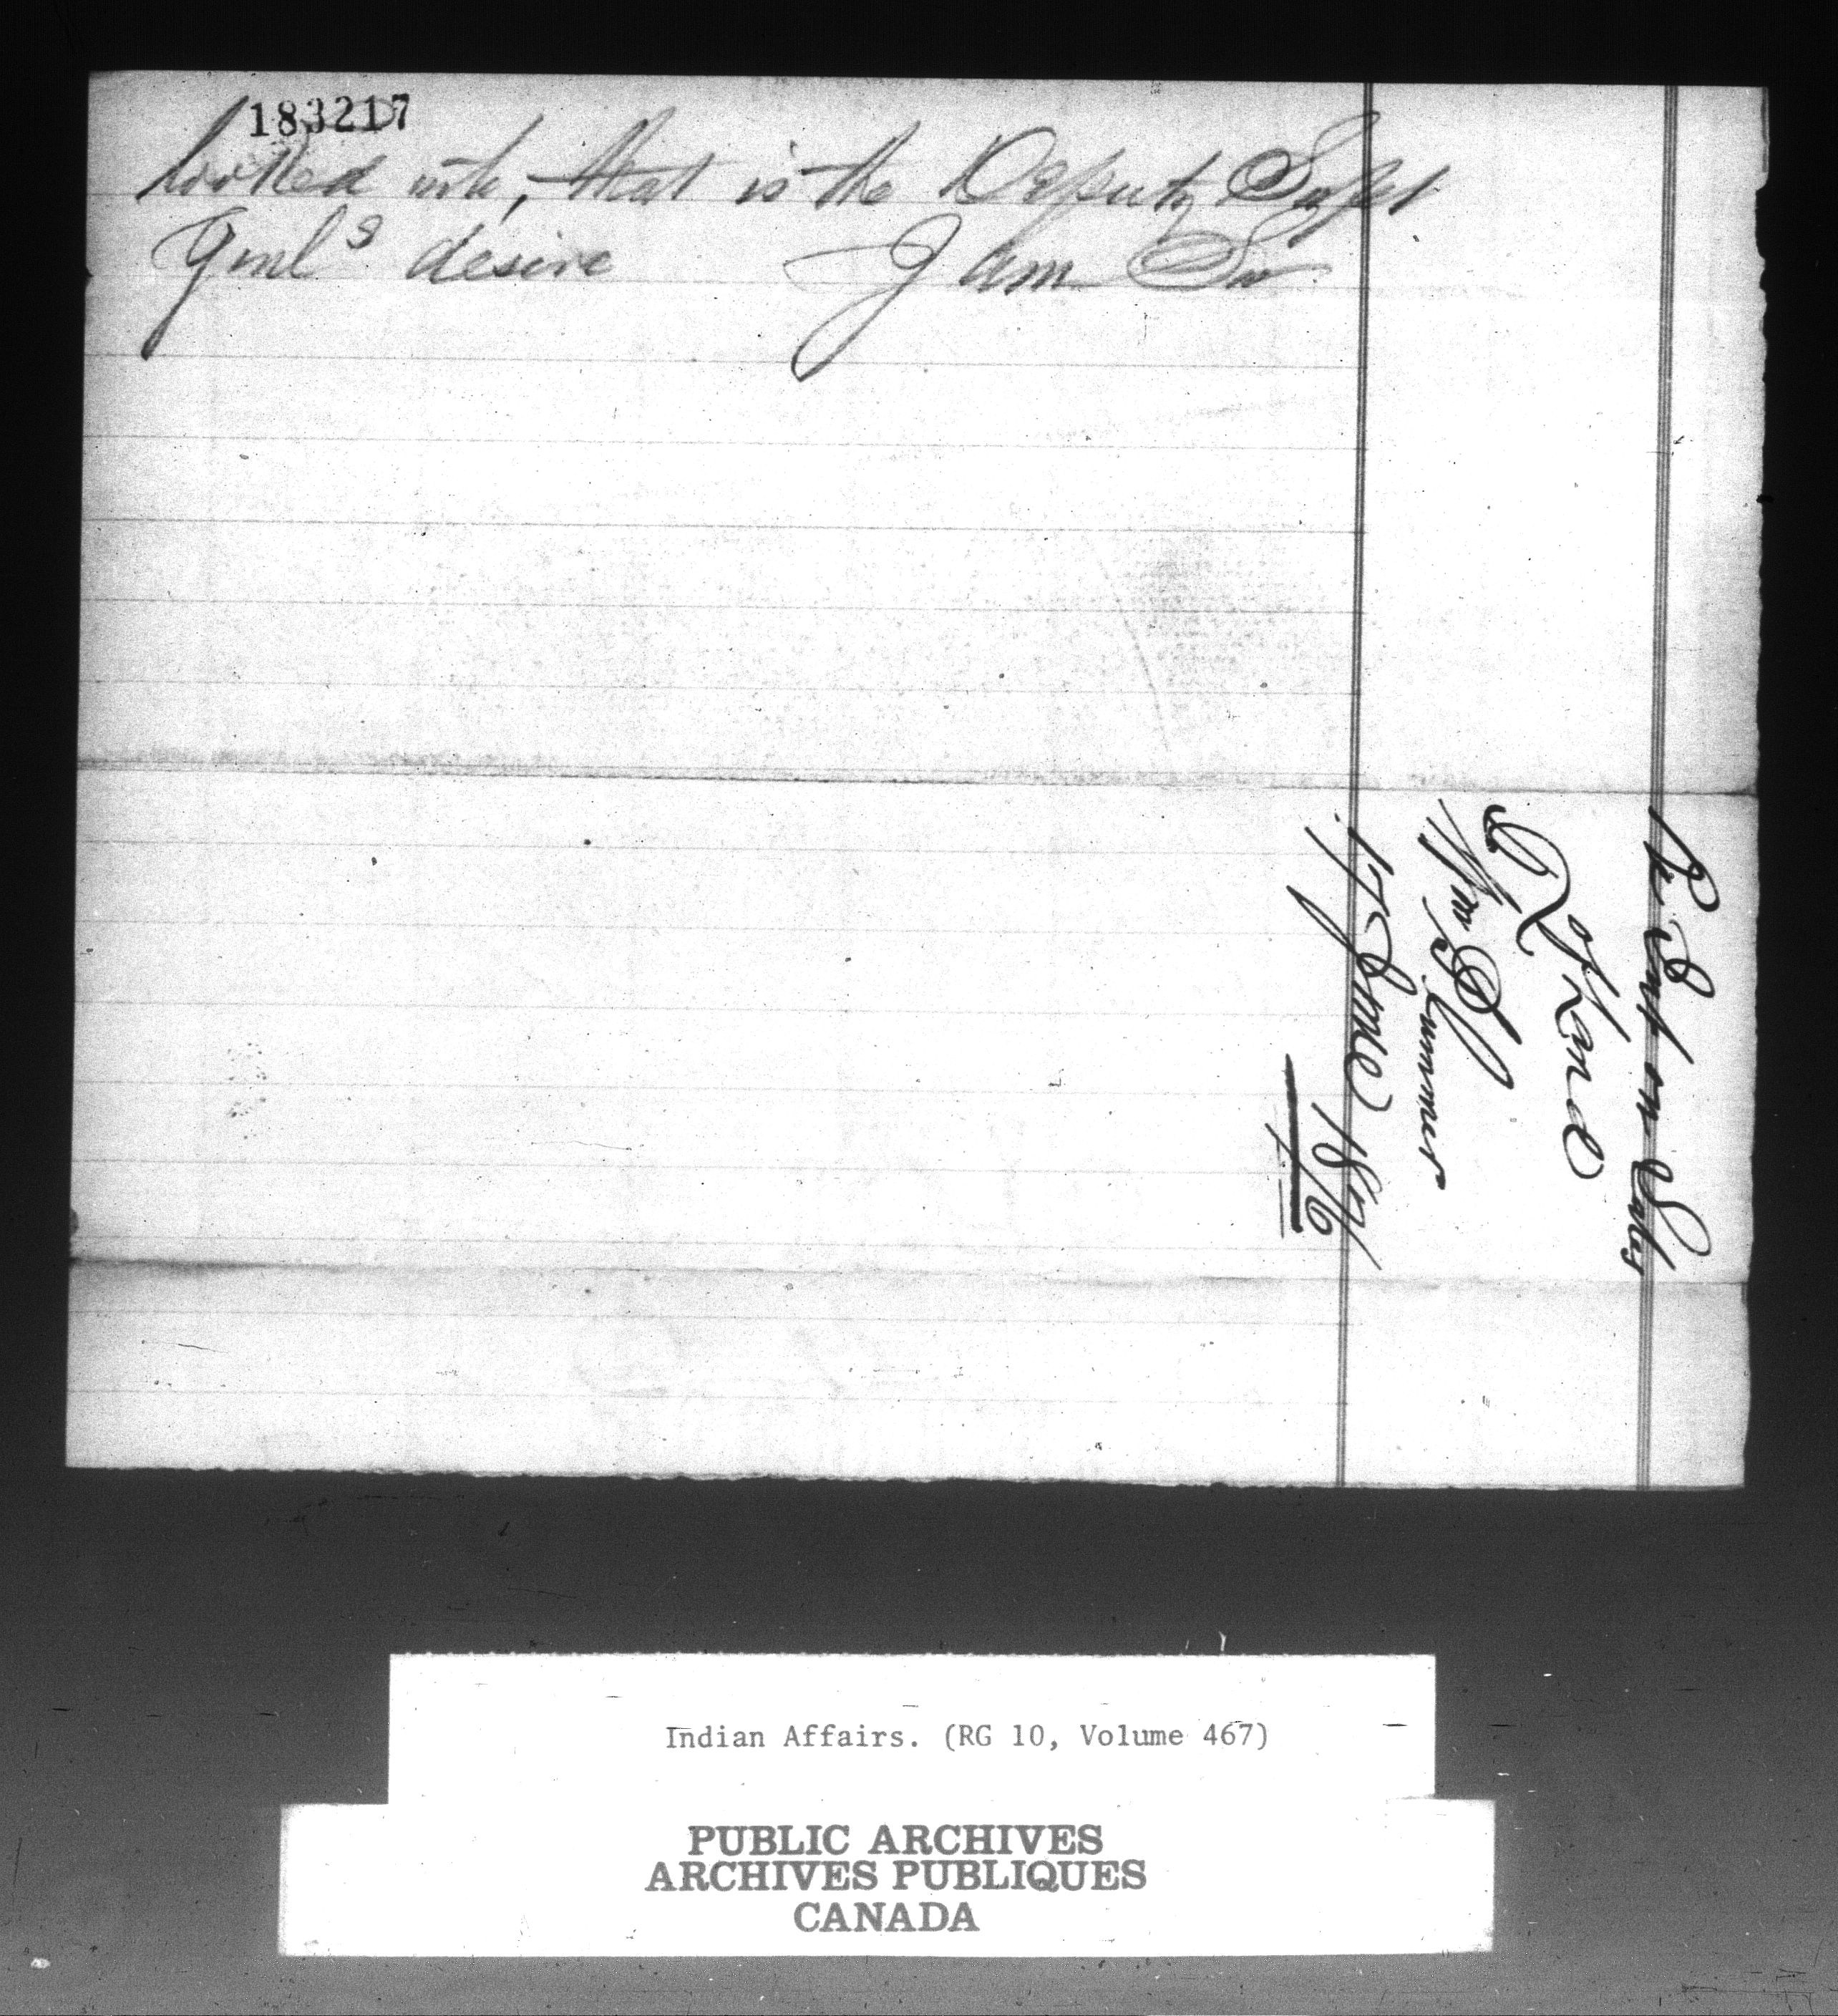 183217
looked into, that is the Deputy Supt
Genl's desire I am Sir
Report on Sales
of Land
Wm Plummer
17 June 1876
Indian Affairs. (RG 10, Volume 467)
PUBLIC ARCHIVES
ARCHIVES PUBLIQUES
CANADA